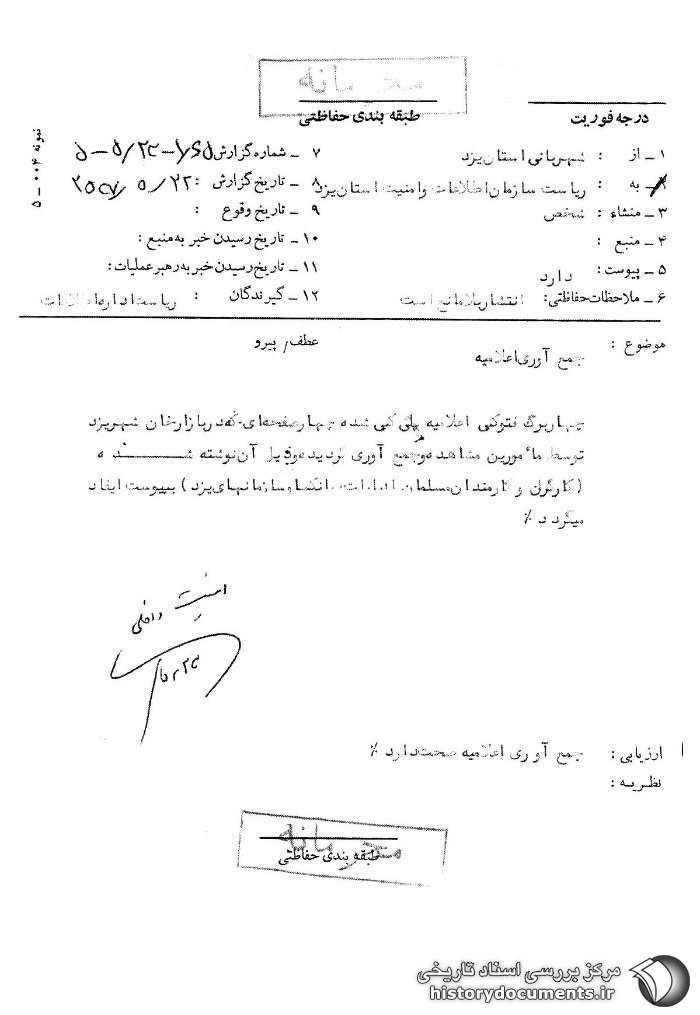 محرمانه
طبقه بندی حفاظتی
درجه فوریت
نمونه ۰۰۴ - ۵
۱ - از : شهربانی استان یزد
۲ - به : ریاست سازمان اطلاعات و امنیت استان یزد
۳ - منشاء : شخص
۴ - منبع :
۵ - پیوست : دارد
۶ - ملاحظات حفاظتی : انتشار بلامانع است
۷ - شماره گزارش
۸ - تاریخ گزارش : ۲۲/ ۵ /۲۵۳۷
۹ - تاریخ وقوع :
۱۰ - تاریخ رسیدن خبر به منبع :
۱۱ - تاریخ رسیدن خبر به رهبر عملیات :
۱۲ - گیرندگان : ریاست اداره اطلاعات
موضوع : جمع آوری اعلامیه
عطف/ پیرو
چهار برگ فتوکپی اعلامیه پلی کپی شده چهار صفحه‌ای که در بازار خان شهر یزد
توسط مأمورین مشاهده و جمع آوری گردیده و ذیل آن نوشته شــــده
(کارگران و کارمندان مسلمان ادارات دانشگاه و سازمانهای یزد ) بپیوست ایفاد
میگردد ٪
امنیت داخلی
۵/۲۳
ارزیابی : جمع آوری اعلامیه صحت دارد ٪
نظریه :
محرمانه
طبقه بندی حفاظتی
مرکز بررسی اسناد تاریخی
historydocuments.ir